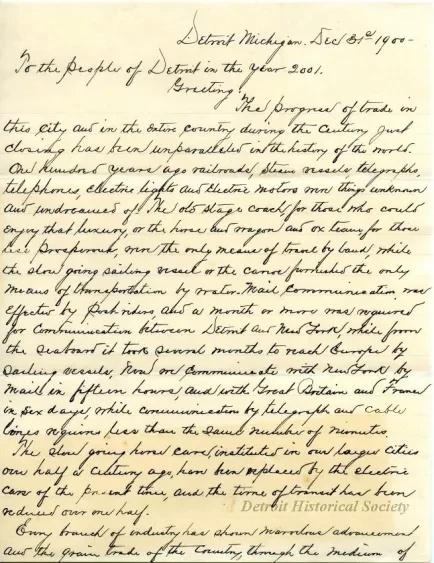 Detroit Michigan. Dec 31st 1900-
To the People of Detroit in the Year 2001.
Greeting:
The progress of trade in
this City and in the entire country during the Century just
closing has been unparalleled in the history of the world.
One hundred years ago railroads, steam vessels, telegraphs,
telephones, electric lights and electric motors were things unknown
and undreamed of. The old stage coach, for those who could
enjoy that luxury, or the horse and wagon and ox team, for those
less prosperous, were the only means of travel by land, while
the slow going sailing vessel or the canoe furnished the only
means of transportation by water. Mail communication was
effected by post riders, and a month or more was required
for communication between Detroit and New York while from
the seaboard it took several months to reach Europe by
sailing vessels. Now we communicate with New York by
mail in fifteen hours, and with Great Britain and France
in six days, while communication by telegraph and cable
lines requires less than the same number of minutes.
The slow going horse cars, instituted in our larger cities
over half a century ago, have been replaced by the electric
cars of the present time, and the time of transit has been
reduced over one half.
Detroit Historical Society
Every branch of industry has shown marvelous advancement
and the grain trade of the Country, through the medium of